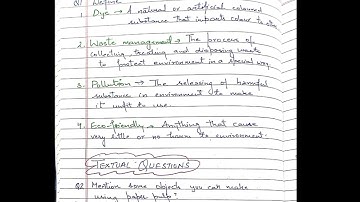 Q1 Define
1. Dye → A natural or artificial coloured
substance that imparts colour to
2. Waste management → The process of
collecting, treating and disposing waste
to protect environment in a special way.
3. Pollution → The releasing of harmful
substance in environment to make
it unfit to use.
4. Eco-friendly → Anything that cause
very little or no harm to environment.
TEXTUAL QUESTIONS
Q2 Mention some objects you can make
using paper pulp?